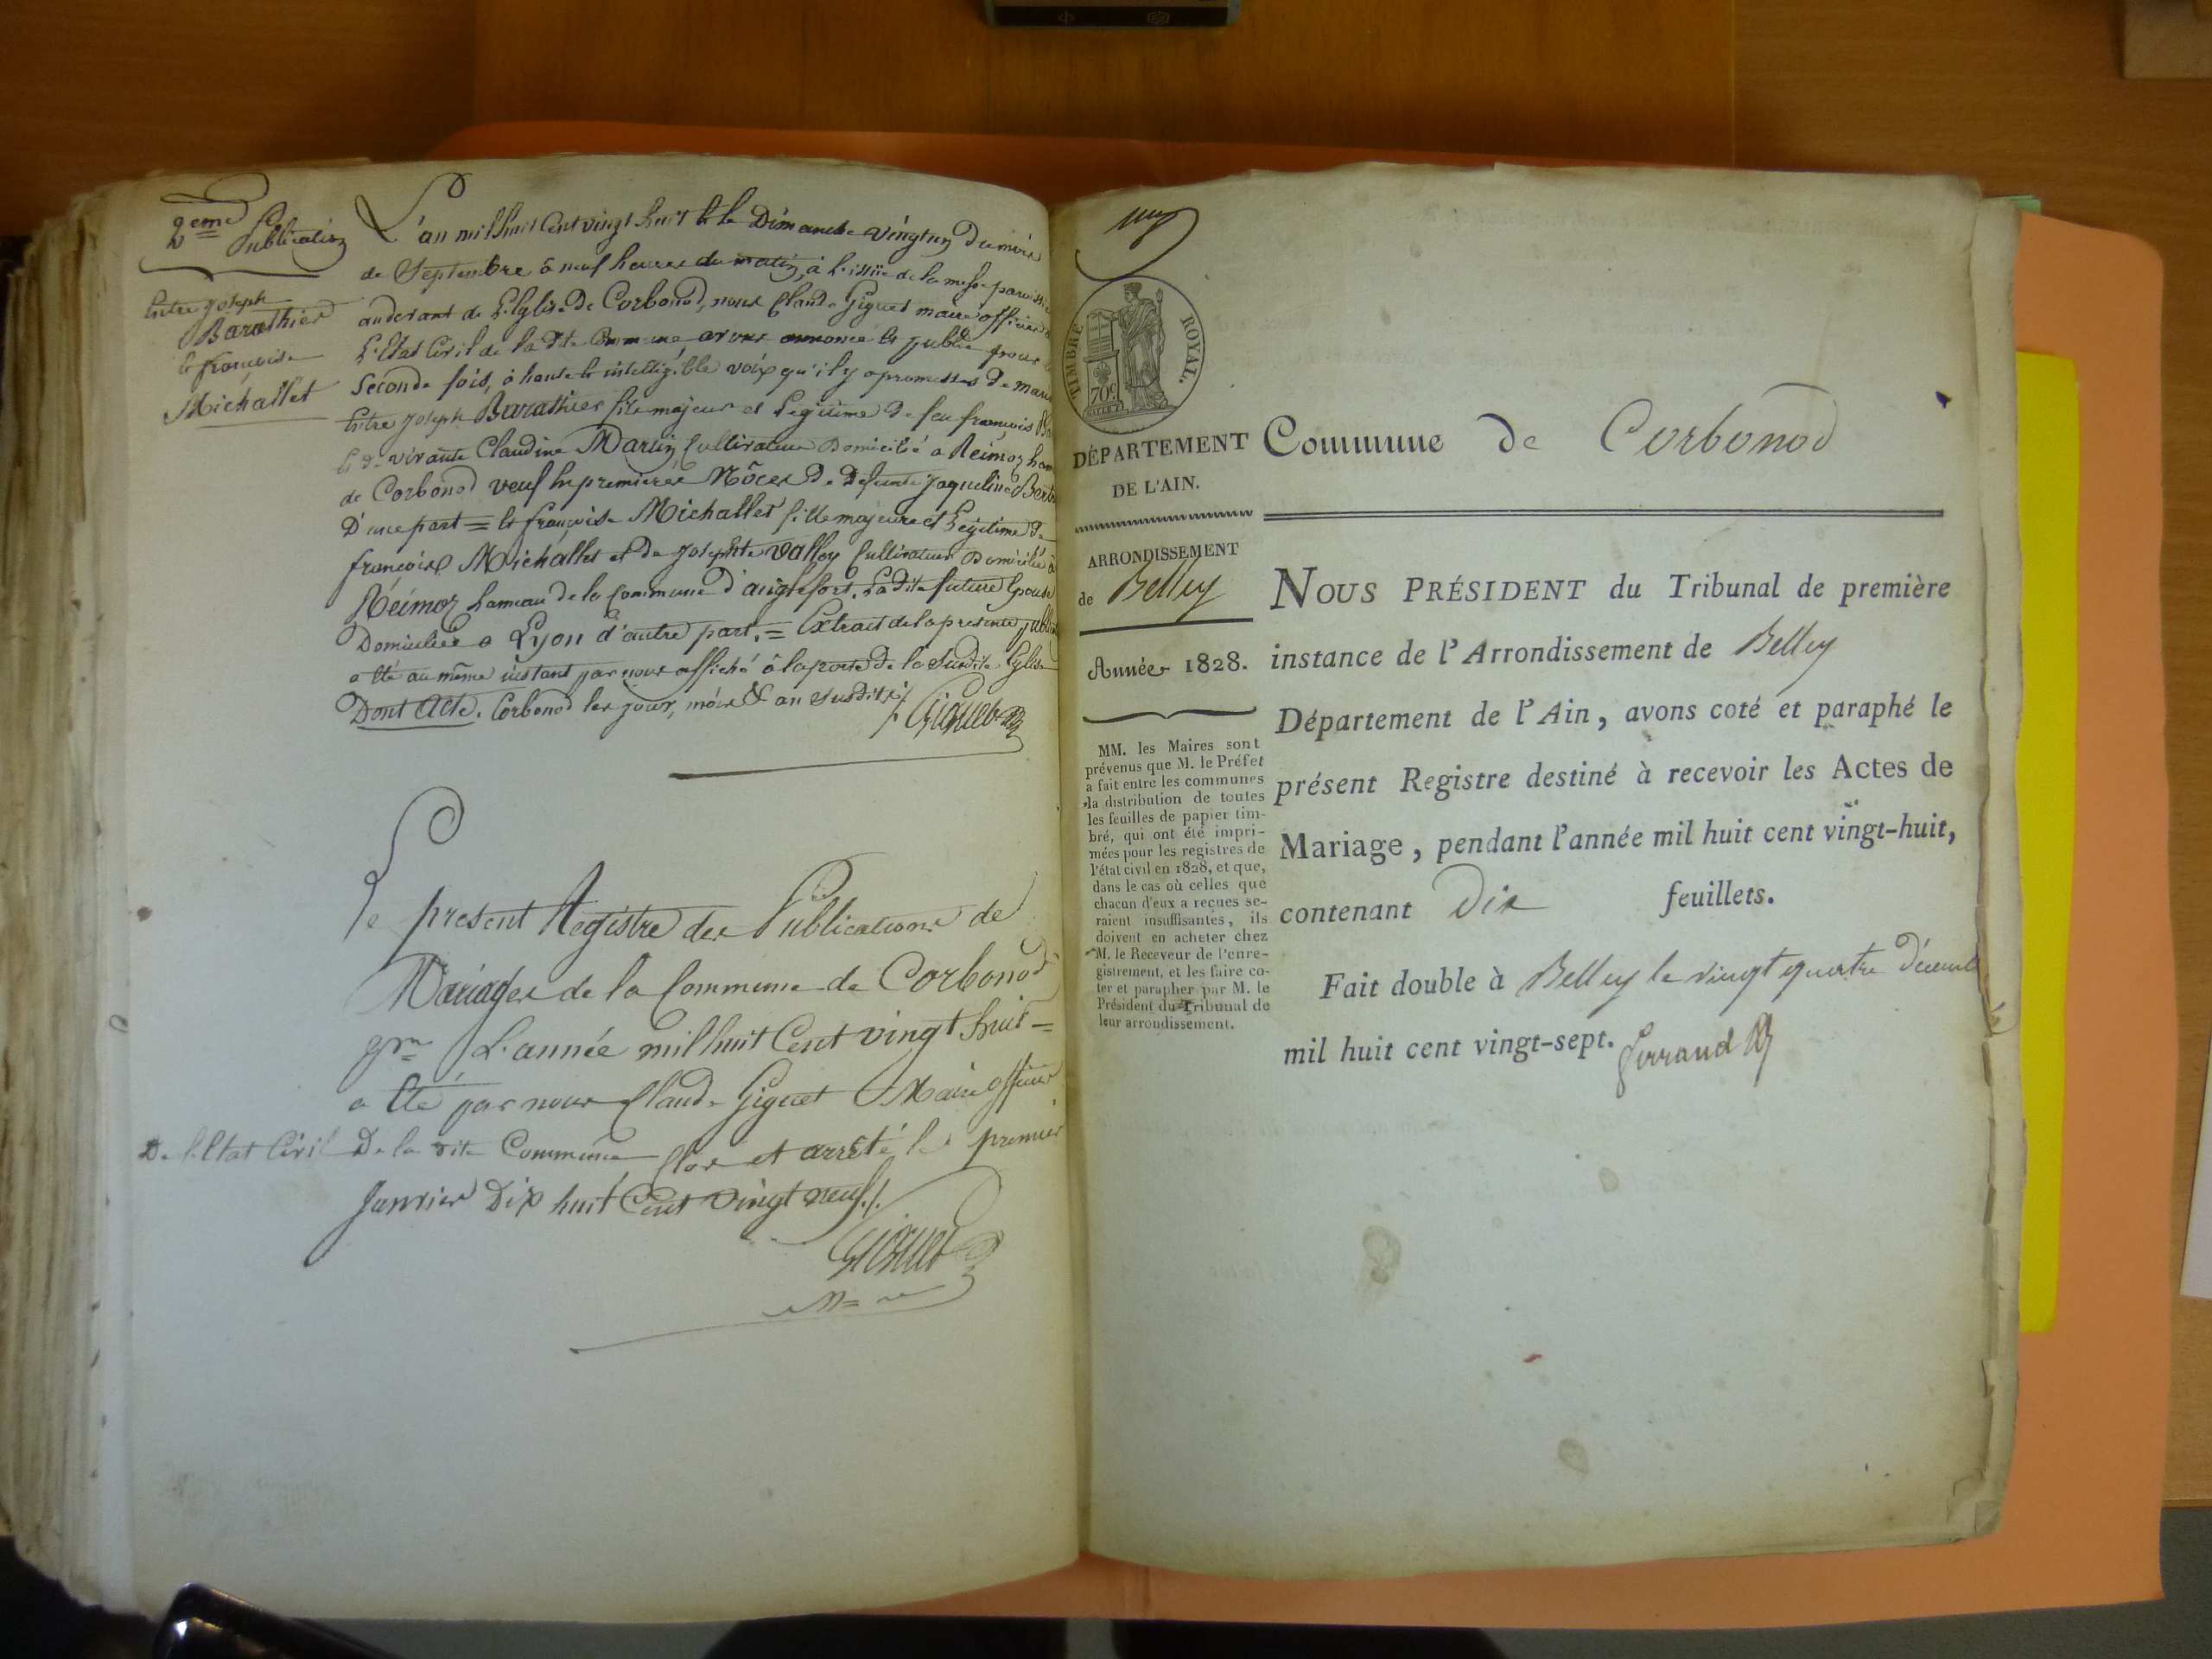 2eme Publication
Entre Joseph
Barathier
et françoise
Michallet
L'an mil huit Cent vingt huit et le Dimanche vingt un du mois
de Septembre à neuf heures du matin, à l'issüe de la messe paroissi
au devant de l'Eglise de Corbonod, nous Claude Giguet maire officier
l'Etat Civil de la dite Commune, avons annoncé et publié pour
Seconde fois, à haute et intelligible voix qu'il y a promesses de mari
Entre Joseph Barathier fils majeur et Legitime de feu françois Ba
et de vivante Claudine Martin Cultivateur Domicilié à Reimoz ham
de Corbonod veuf En premieres Nôces de Defunte Jaqueline Berth
D'une part = et françoise Michallet fille majeure et Legitime de
françois Michallet et de Josephte Valloy Cultivateur Domicilié à
Réimoz hameau de la Commune d'anglefort. La dite future Epouse
Domiciliée à Lyon d'autre part. = Extrait de la presente publi
a été au même instant par nous affiché à la porte de la susdite Eglise
Dont Acte. Corbonod les jour, mois & an susdits./.
Giguet
Le present Registre des Publications de
Mariages de la Commune de Corbonod
pr L'année mil huit Cent vingt huit =
a été par nous Claude Giguet Maire officier
De l'Etat Civil De la dite Commune Clos et arrêté le premier
Janvier Dix huit Cent vingt neuf./.
Giguet
TIMBRE ROYAL.
70c
DÉPARTEMENT
DE L'AIN.
ARRONDISSEMENT
de Belley
Année 1828.
MM. les Maires sont
prévenus que M. le Préfet
a fait entre les communes
la distribution de toutes
les feuilles de papier tim-
bré, qui ont été impri-
mées pour les registres de
l'état civil en 1828, et que,
dans le cas où celles que
chacun d'eux a reçues se-
raient insuffisantes, ils
doivent en acheter chez
M. le Receveur de l'enre-
gistrement, et les faire co-
ter et parapher par M. le
Président du Tribunal de
leur arrondissement.
Commune de Corbonod
NOUS PRÉSIDENT du Tribunal de première
instance de l'Arrondissement de Belley
Département de l'Ain, avons coté et paraphé le
présent Registre destiné à recevoir les Actes de
Mariage, pendant l'année mil huit cent vingt-huit,
contenant Dix feuillets.
Fait double à Belley le vingt quatre Décemb
mil huit cent vingt-sept. Ferrand